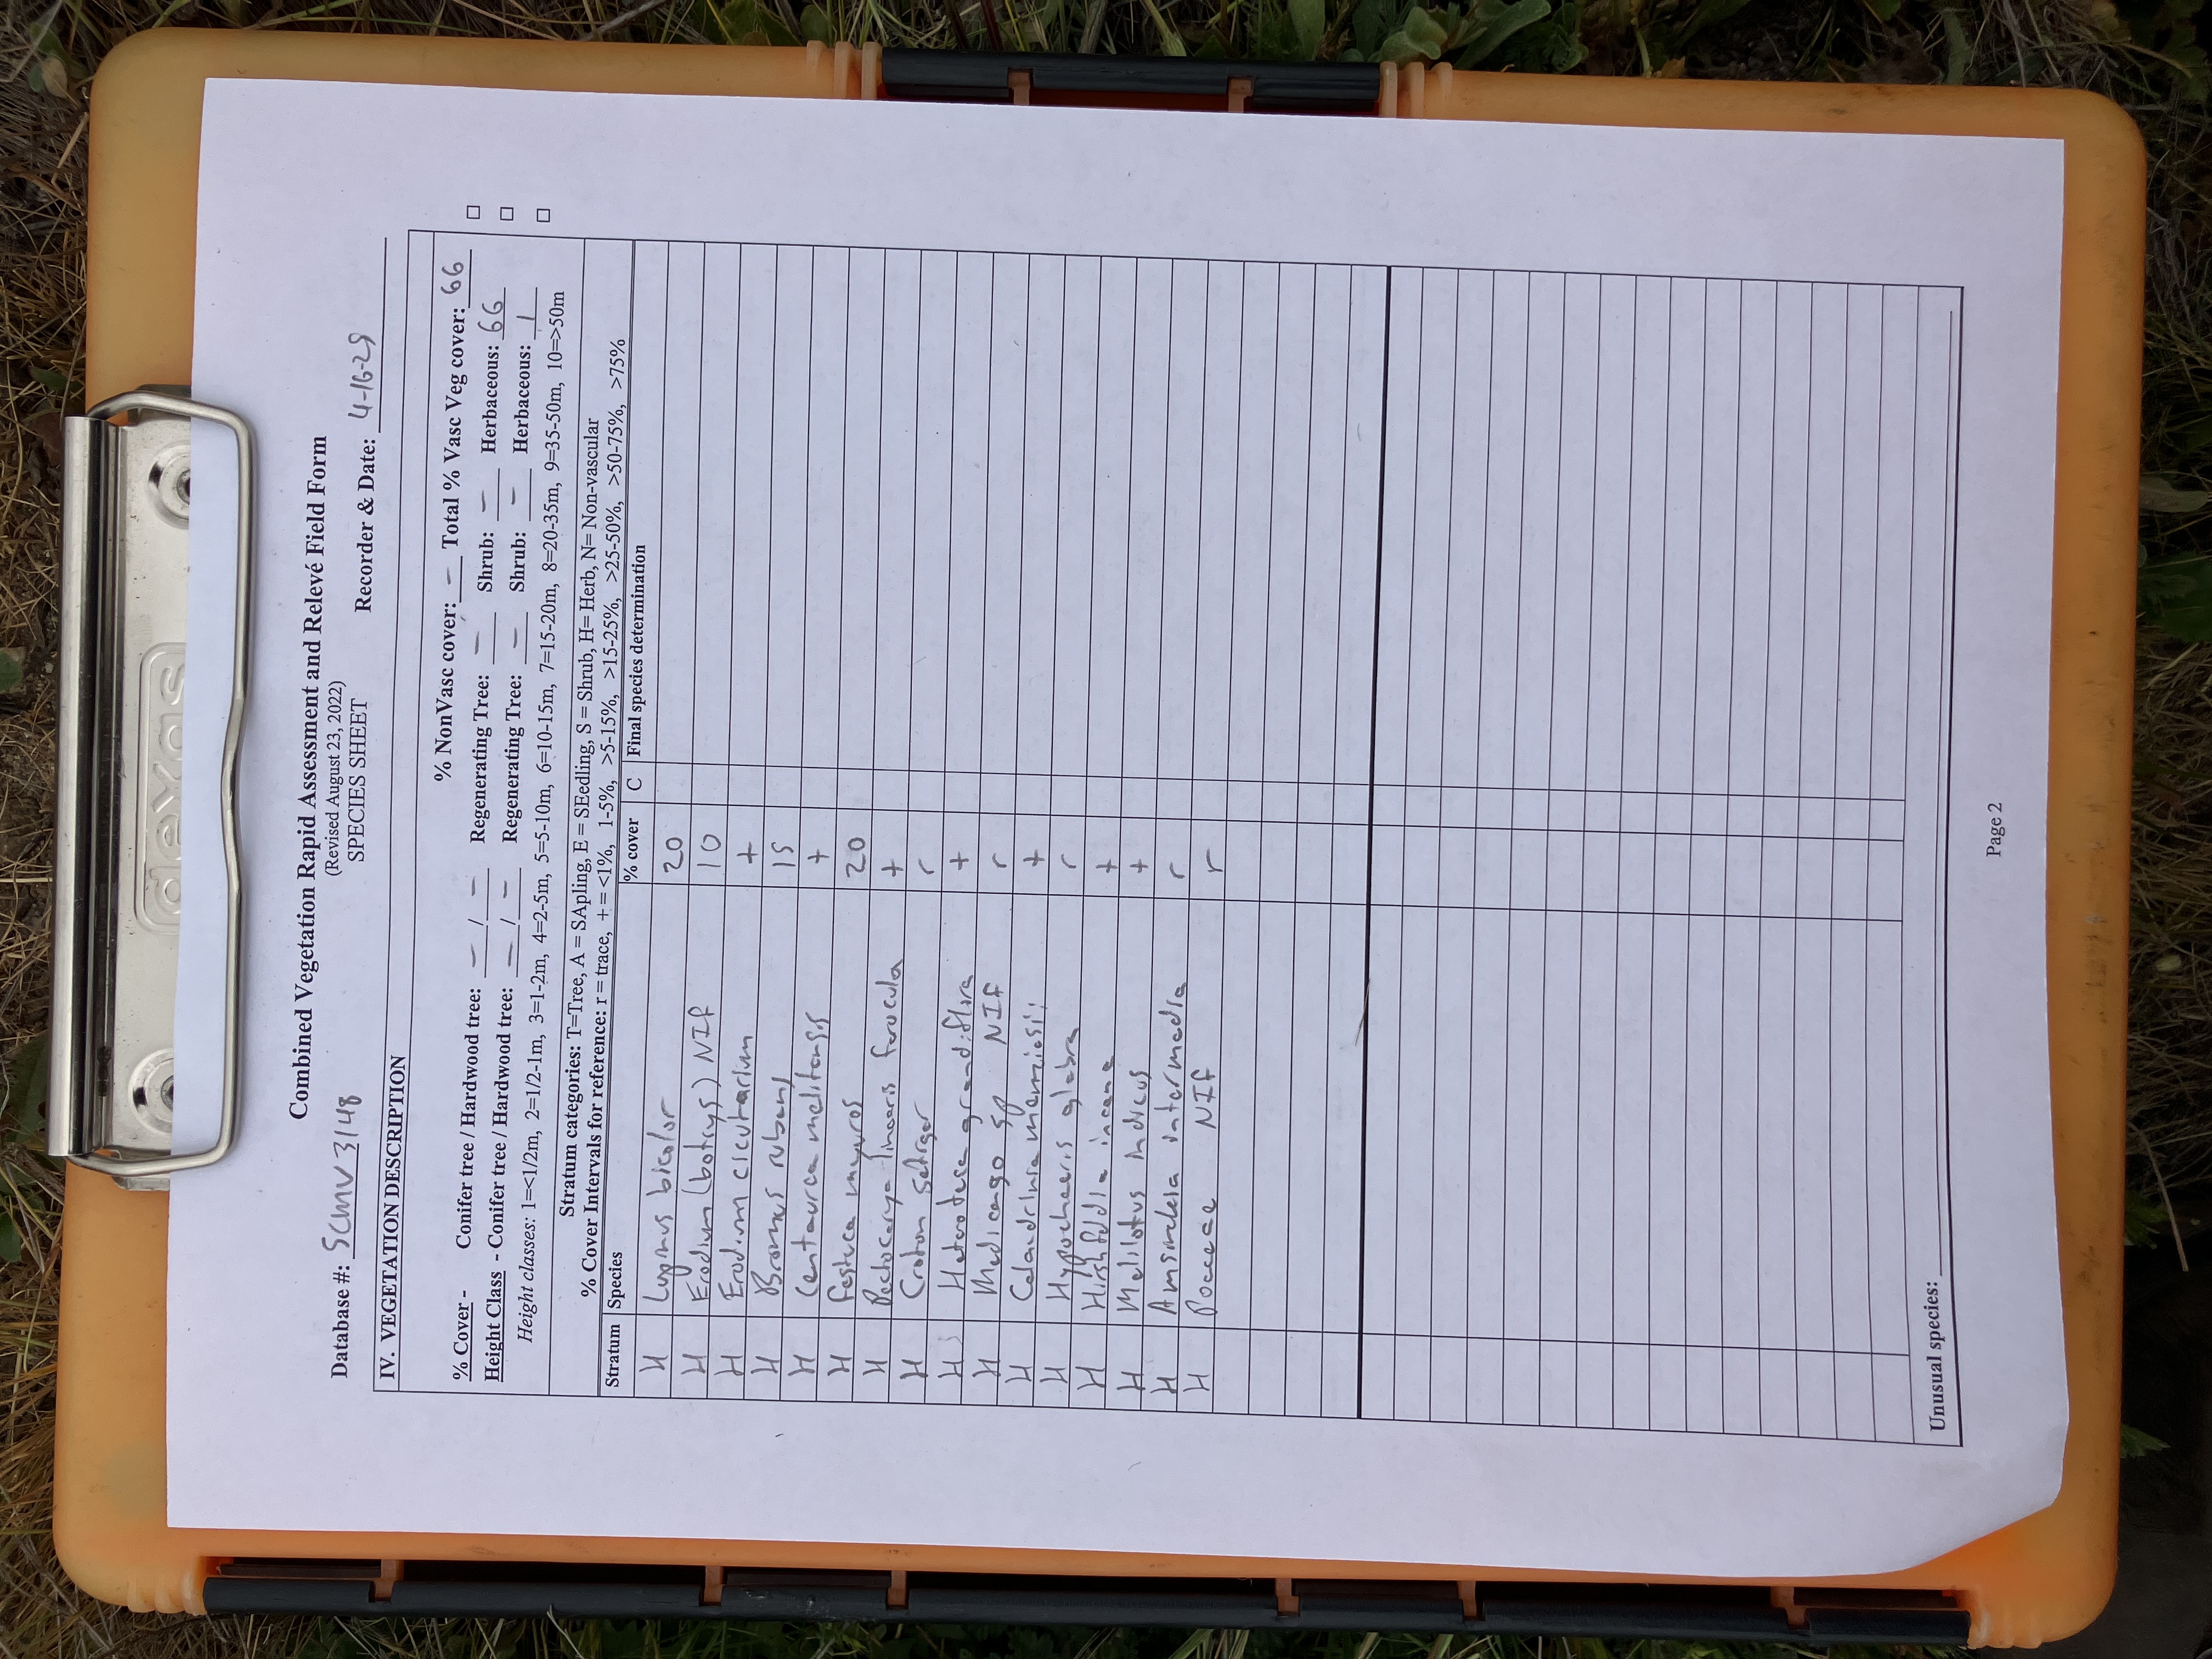 dexas
Combined Vegetation Rapid Assessment and Relevé Field Form
(Revised August 23, 2022)
SPECIES SHEET
Database #: SCMV3148 Recorder & Date: 4-16-25
IV. VEGETATION DESCRIPTION
% NonVasc cover: - Total % Vasc Veg cover: 66
% Cover - Conifer tree / Hardwood tree: - / - Regenerating Tree: - Shrub: - Herbaceous: 66
Height Class - Conifer tree / Hardwood tree: - / - Regenerating Tree: - Shrub: - Herbaceous: 1
Height classes: 1=<1/2m, 2=1/2-1m, 3=1-2m, 4=2-5m, 5=5-10m, 6=10-15m, 7=15-20m, 8=20-35m, 9=35-50m, 10=>50m
Stratum categories: T=Tree, A = SApling, E = SEedling, S = Shrub, H= Herb, N= Non-vascular
% Cover Intervals for reference: r = trace, + = <1%, 1-5%, >5-15%, >15-25%, >25-50%, >50-75%, >75%
Stratum Species % cover C Final species determination
H Lupinus bicolor 20
H Erodium (botrys) NIF 10
H Erodium cicutarium +
H Bromus rubens 15
H Centaurea melitensis +
H Festuca myuros 20
H Pectocarya linearis ferocula +
H Croton setiger r
H Heterotheca grandiflora +
H Medicago sp NIF r
H Calandrinia menziesii +
H Hypochaeris glabra r
H Hirshfeldia incana +
H Melilotus indicus +
H Amsinckia intermedia r
H Poaceae NIF r
Unusual species:
Page 2